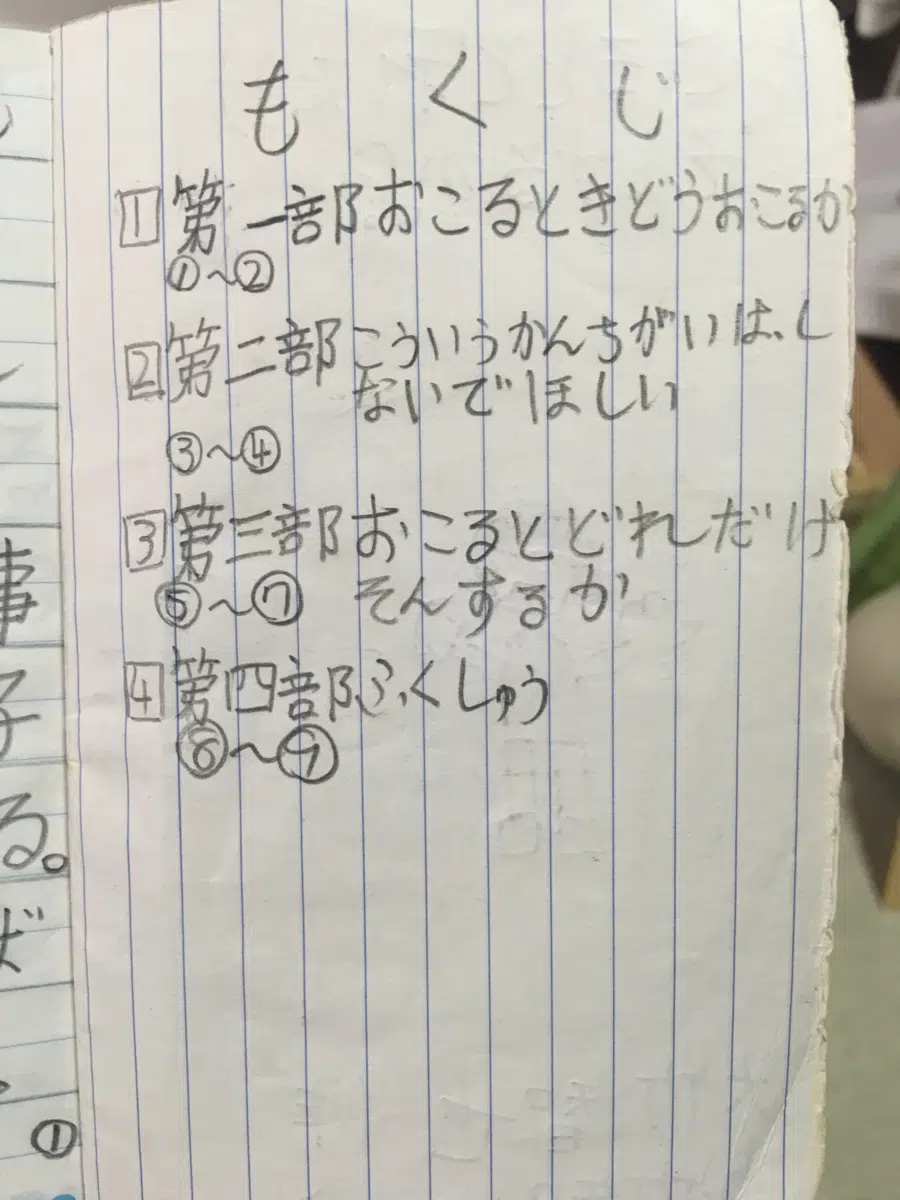 もくじ
1 第一部 おこるときどうおこるか
①~②
2 第二部 こういうかんちがいは、し
ないでほしい
③~④
3 第三部 おこるとどれだけ
⑤~⑦ そんするか
4 第四部 ふくしゅう
⑧~⑨
事
子
る。
①